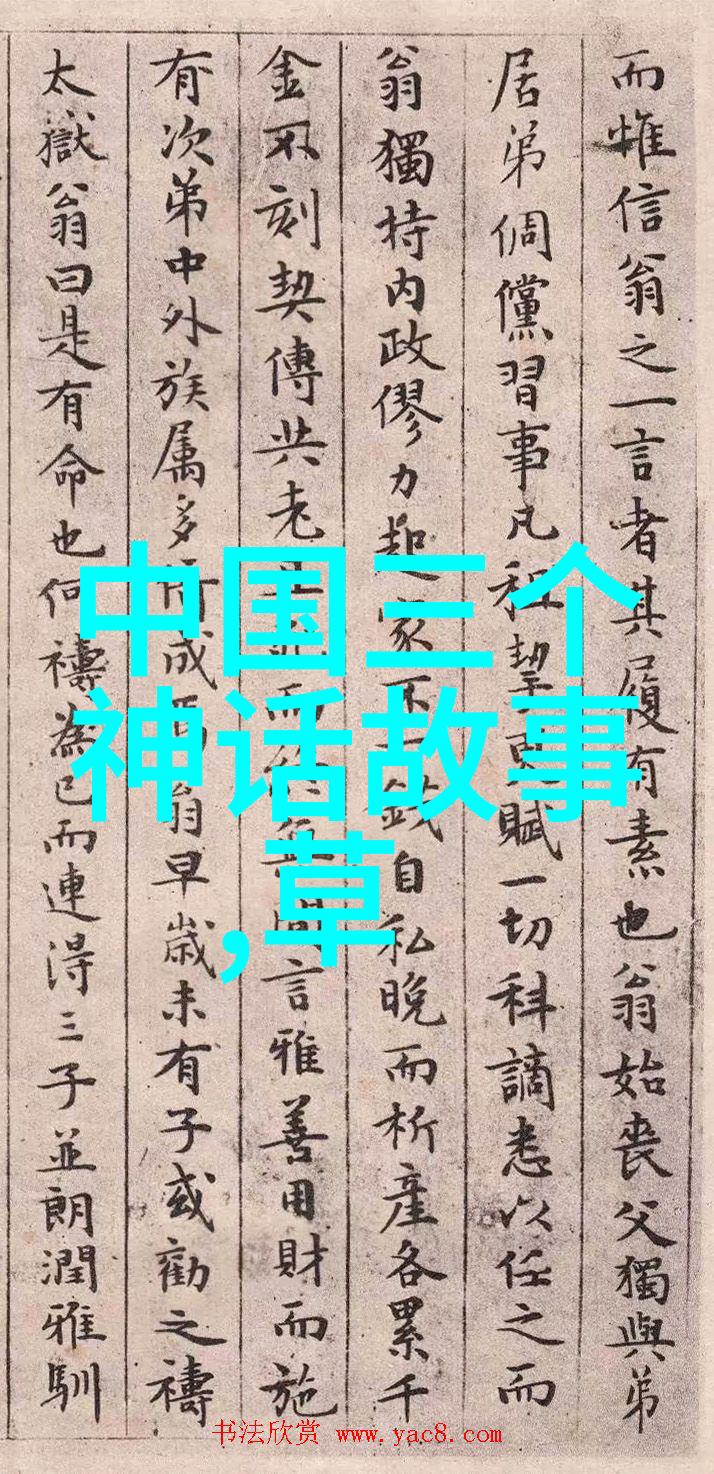 而惟信翁之一言者其履有素也翁始喪父獨與弟
居弟倜儻習事凡租挈更賦一切科謫悉以任之而
翁獨持内政僇力起家不一錢自私晚而析產各累千
金不刻契傳共老而無間言雅善用財而施
有次第中外族属多所成焉翁早歲未有子或勸之禱
太嶽翁曰是有命也何禱為已而連得三子並朗潤雅馴
中国三个
神话故事
,草
书法欣赏 www.yac8.com